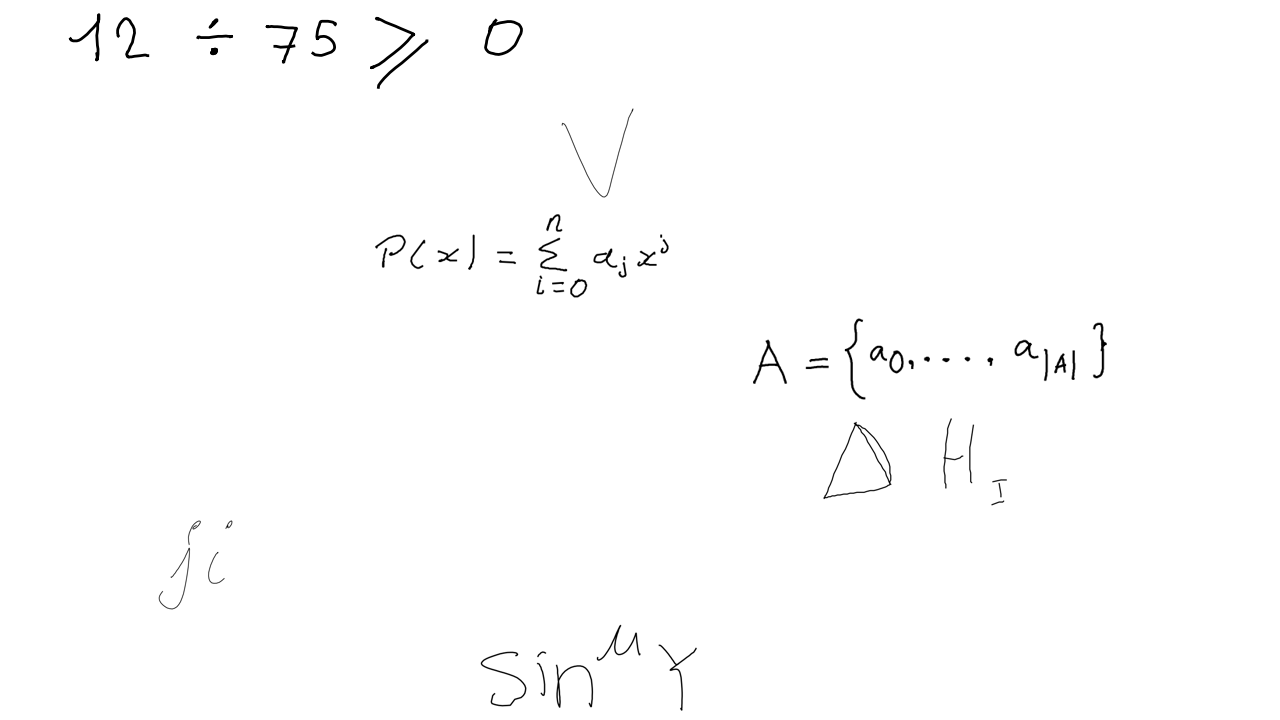 12 ÷ 75 ≥ 0
V
P(x) = ∑_{i=0}^{n} a_j x^j
A = {a_0, ...., a_{|A|}}
Δ H_I
ji
sin^μ Y